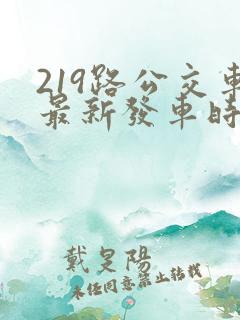 219路公交車
最新發車時
戴旻陽
未经同意禁止转载